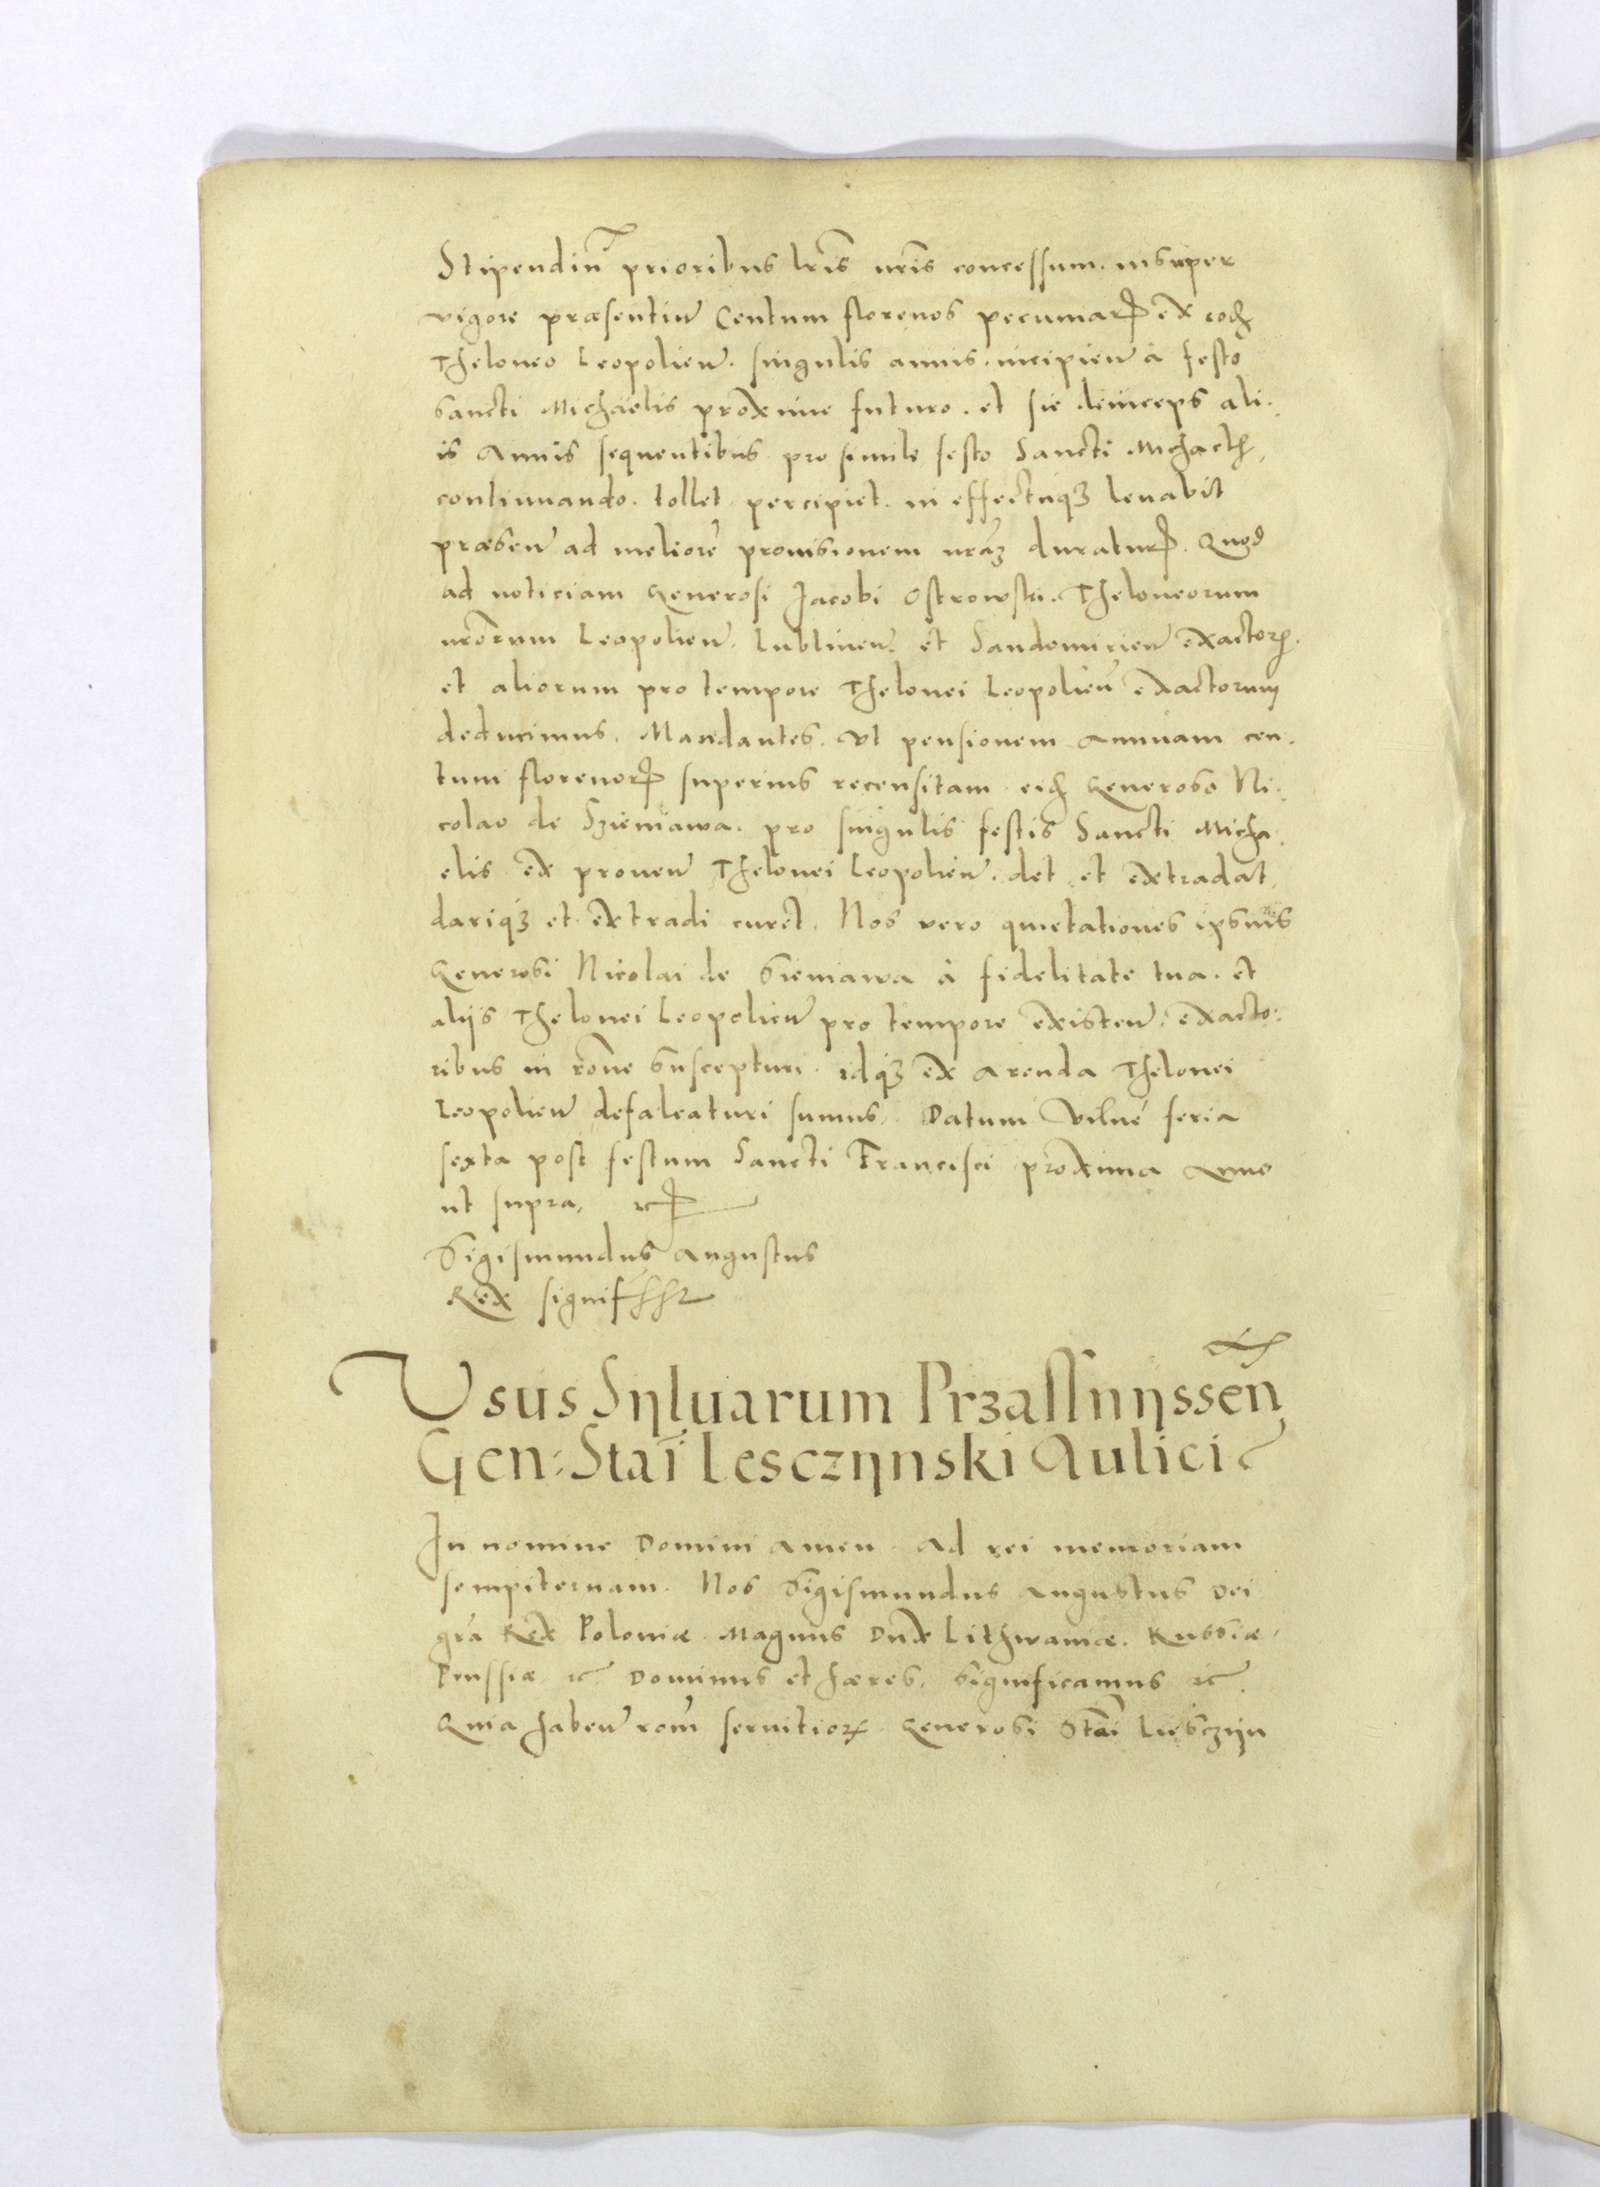 Stipendiū prioribus lr̃is nr̃is concessum. insuper
vigore præsentiuɱ Centum florenos pecuniarꝝ ex eodꝫ
Theloneo Leopolieñ. singulis annis. incipieñ à festo
Sancti Michaelis proxime futuro. et sic deinceps ali-
is Annis sequentibus pro simile festo Sancti Michaelꝭ,
continuando. tollet percipiet. in effectuqꝫ levabit
præseñ ad meliorẽ provisionem nr̃aꝫ duraturꝝ. Quod
ad noticiam Generosi Jacobi Ostrowski. Theloneorum
nr̃orum Leopolieñ. Lublineñ. et Sandomirieñ exactorꝭ.
et aliorum pro tempore Thelonei Leopolieñ exactorum
deducimus. Mandantes. Vt pensionem annuam cen-
tum florenorꝝ superius recensitam eidꝫ Generoso Ni-
colao de Szieniawa. pro singulis festis Sancti Micha-
elis ex proveñ Thelonei Leopolieñ. det et extradat,
dariqꝫ et extradi curet. Nos vero quietationes ipsius
Generosi Nicolai de Sieniawa à fidelitate tua. et
alijs Thelonei Leopolieñ pro tempore existeñ. exacto-
ribus in rõne suscepturi. idqꝫ ex arenda Thelonei
Leopolieñ defalcaturi sumus. Datum Vilnę feria
sexta post festum Sancti Francisci proxima Anno
ut supra,
Sigismundus Augustus
Rex signif sszt
Vsus Syluarum Przassnyssen̄
Gen: Staĩ Lesczynski Aulici
In nomine Domini amen. Ad rei memoriam
sempiternam. Nos Sigismundus Augustus Dei
gr̃a Rex Poloniæ Magnus Dux Lithwaniæ. Russiæ.
Prussiæ ꝛc Dominus et hæres. Significamus ꝛc.
Quia habeñ rõnẽ servitiorꝝ Generosi Stãi Liesczyn